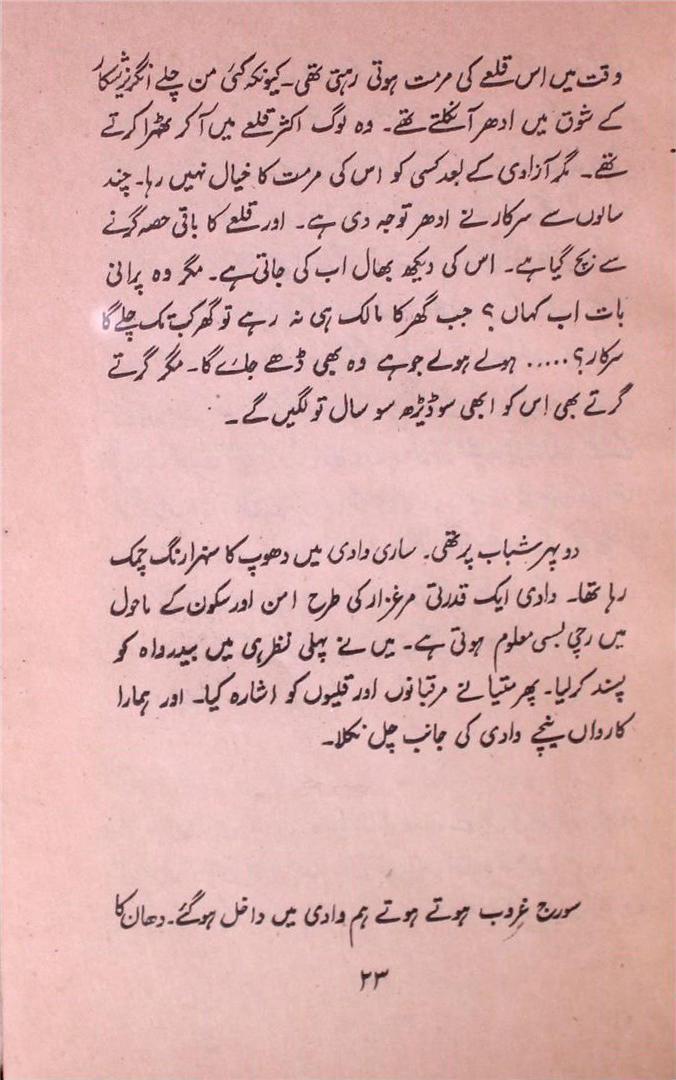 وقت میں اس قلعے کی مرمت ہوتی رہتی تھی۔ کیونکہ کئی من چلے انگریز شکار
کے شوق میں ادھر آ نکلتے تھے۔ وہ لوگ اکثر قلعے میں آکر ٹھہرا کرتے
تھے۔ مگر آزادی کے بعد کسی کو اس کی مرمت کا خیال نہیں رہا۔ چند
سالوں سے سرکار نے ادھر توجہ دی ہے۔ اور قلعے کا باقی حصہ گرنے
سے بچ گیا ہے۔ اس کی دیکھ بھال اب کی جاتی ہے۔ مگر وہ پرانی
بات اب کہاں؟ جب گھر کا مالک ہی نہ رہے تو گھر کب تک چلے گا
سرکار؟ ..... ہولے ہولے جو ہے وہ بھی ڈھے جائے گا۔ مگر گرتے
گرتے بھی اس کو ابھی سو ڈیڑھ سو سال تو لگیں گے۔
دوپہر شباب پر تھی۔ ساری وادی میں دھوپ کا سنہرا رنگ چمک
رہا تھا۔ وادی ایک قدرتی مرغزار کی طرح امن اور سکون کے ماحول
میں رچی بسی معلوم ہوتی ہے۔ میں نے پہلی نظر ہی میں بیدرواہ کو
پسند کر لیا۔ پھر متیا نے مرقبانوں اور قلیوں کو اشارہ کیا۔ اور ہمارا
کارواں نیچے وادی کی جانب چل نکلا۔
سورج غروب ہوتے ہوتے ہم وادی میں داخل ہو گئے۔ دھان کا
۲۳